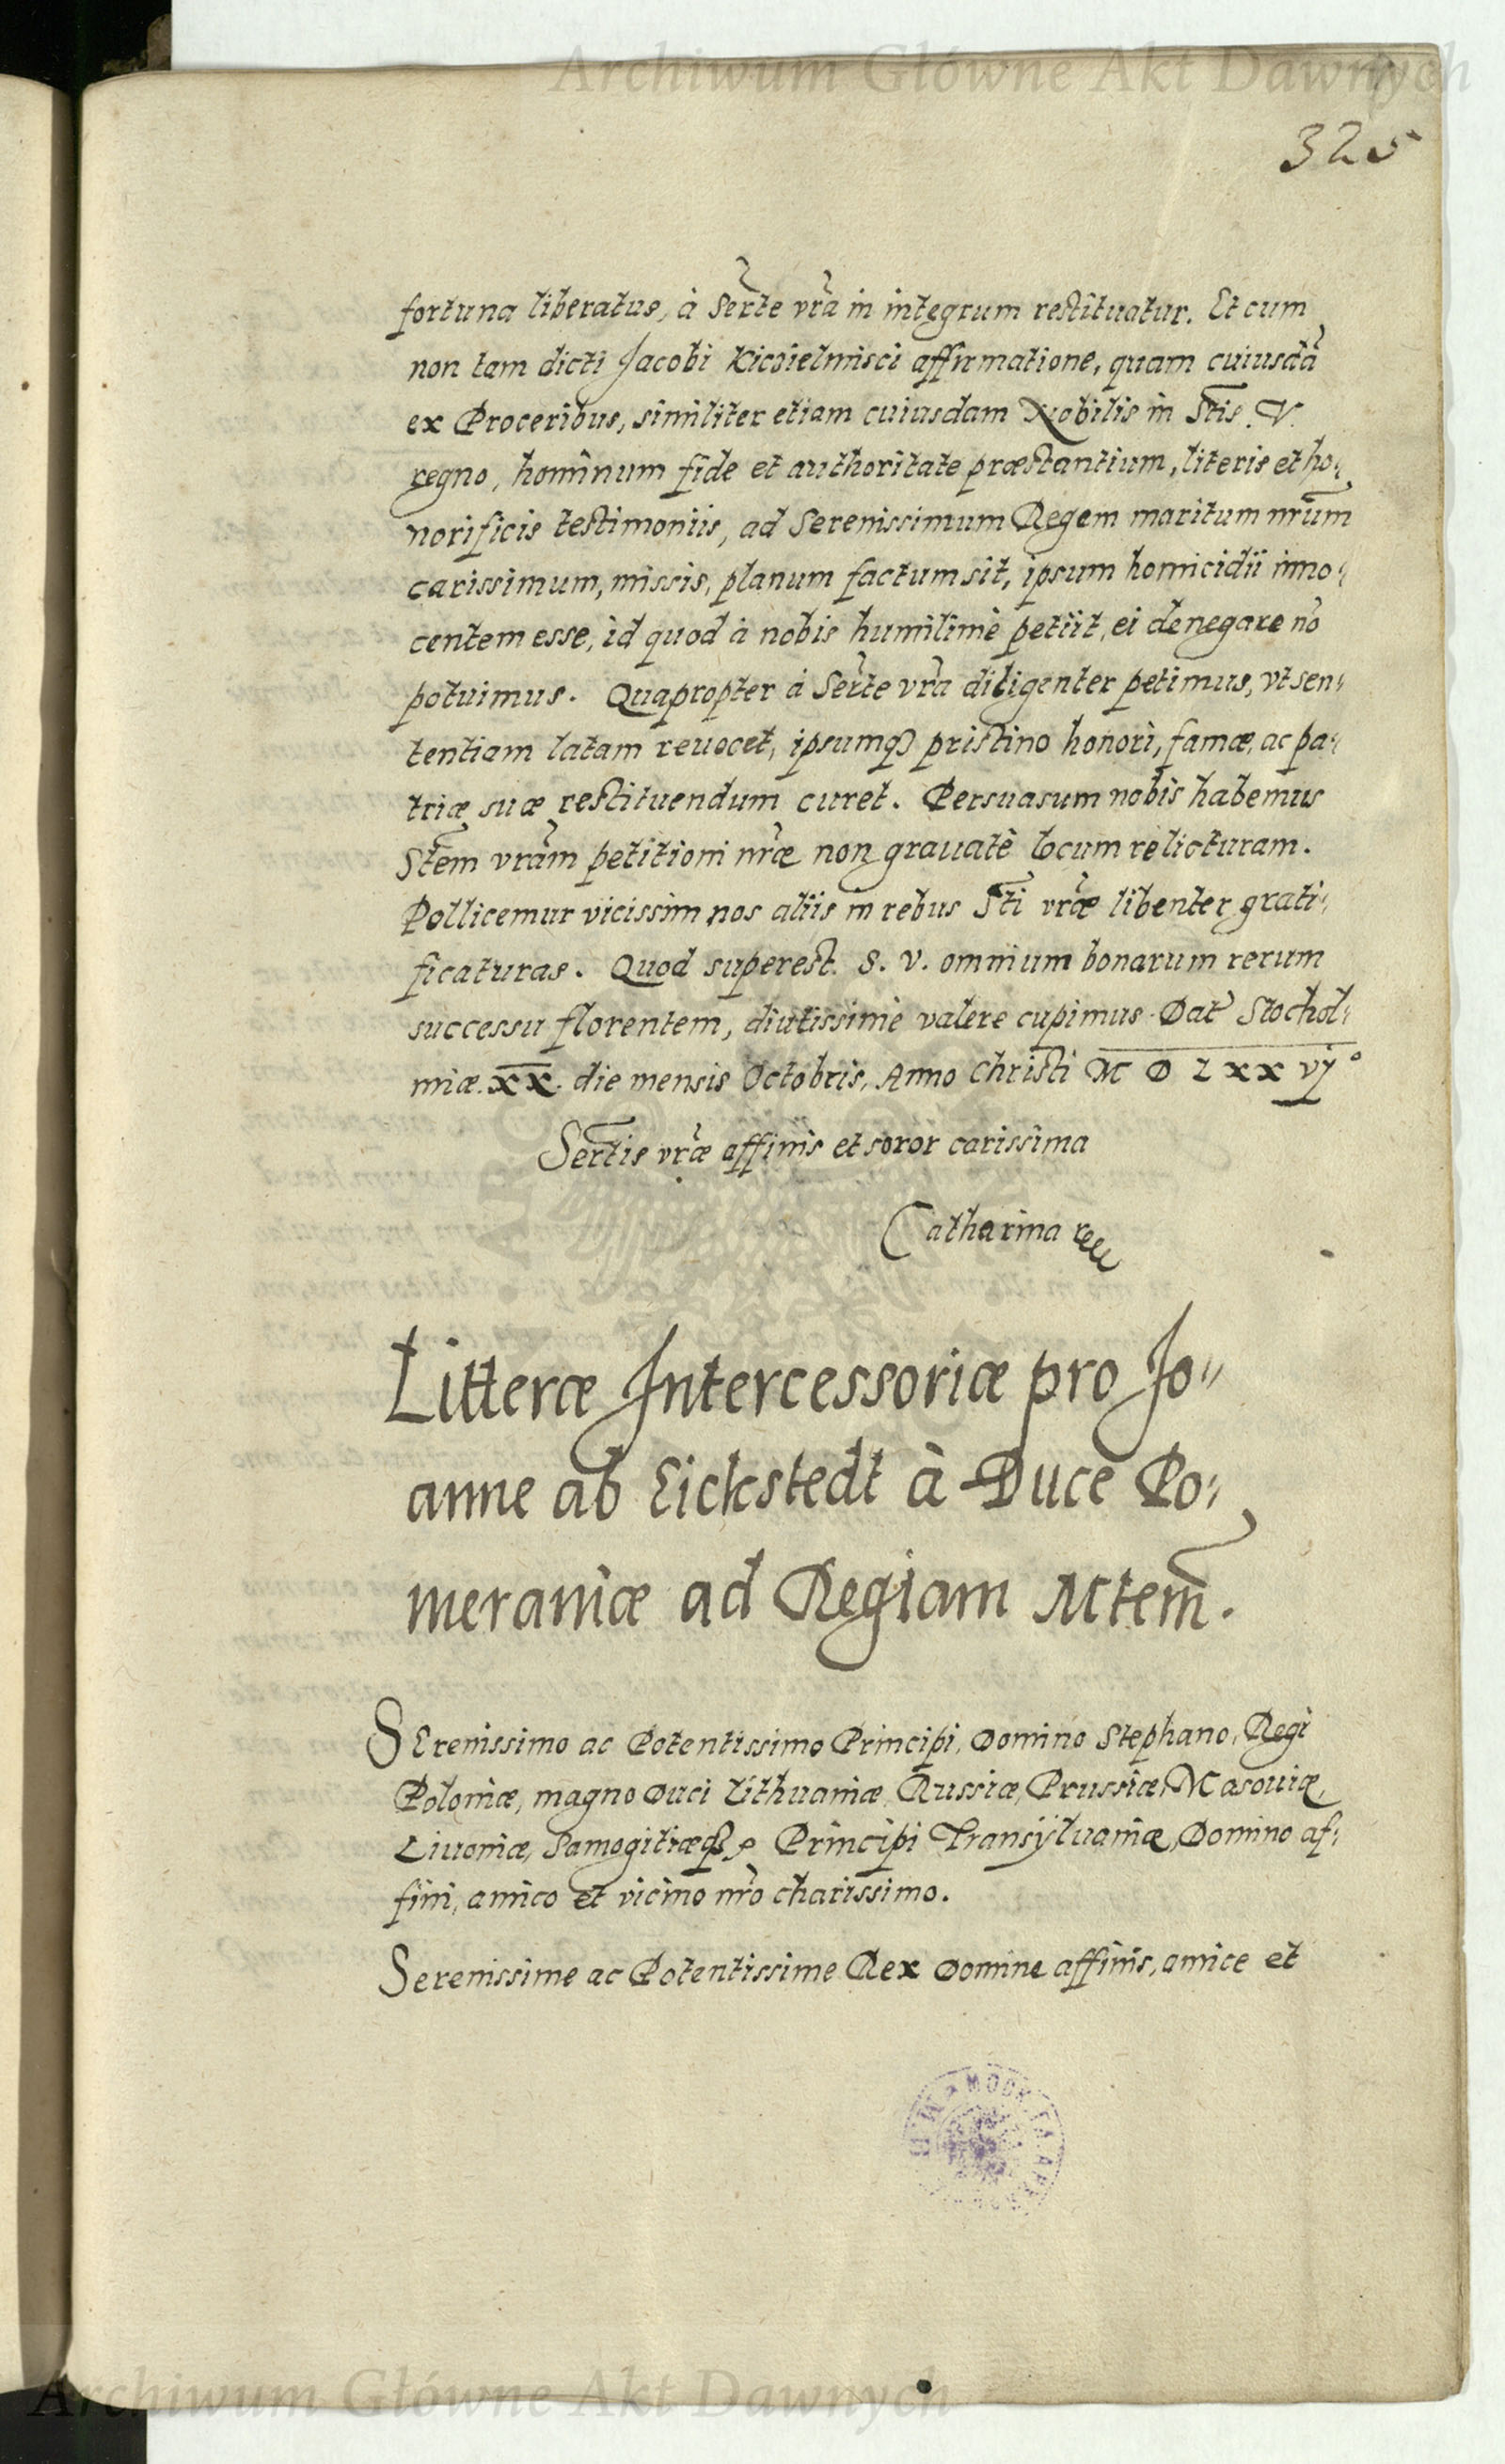 Archiwum Główne Akt Dawnych
325
fortuna liberatus, à Serte vra in integrum restituatur. Et cum
non tam dicti Jacobi Kiczielnisci affirmatione, quam cuiusdā
ex Proceribus, similiter etiam cuiusdam Nobilis in Stis. V.
regno, hominum fide et authoritate præstantium, literis et ho⸗
norificis testimoniis, ad Serenissimum Regem maritum nrum
carissimum, missis, planum factum sit, ipsum homicidii inno⸗
centem esse, id quod à nobis humilimè petiit, ei denegare nō
potuimus. Quapropter à Serte vra diligenter petimus, vt sen⸗
tentiam latam reuocet, ipsumqꝫ pristino honori, famæ, ac pa⸗
triæ suæ restituendum curet. Persuasum nobis habemus
Stem vram petitioni nræ non grauatè locum relicturam.
Pollicemur vicissim nos aliis in rebus Sti vræ libenter grati⸗
ficaturas. Quod superest. S. V. omnium bonarum rerum
successu florentem, diutissimè valere cupimus. Dat Stochol⸗
miæ. XX. die mensis Octobris, Anno Christi M D L x x vj°
Sertis vræ affinis et soror carissima
Catharina
Litteræ Intercessoriæ pro Jo⸗
anne ab Eickstedt à Duce Po⸗
meraniæ ad Regiam Mtem.
SErenissimo ac Potentissimo Principi, Domino Stephano, Regi
Poloniæ, magno Duci Lithuaniæ, Russiæ, Prussiæ, Masouiæ,
Liuoniæ, Samogitiæqꝫ Principi Transÿluaniæ, Domino af⸗
fini, amico et vicino nro charissimo.
Serenissime ac Potentissime Rex Domine affinis, amice et
Archiwum Główne Akt Dawnych